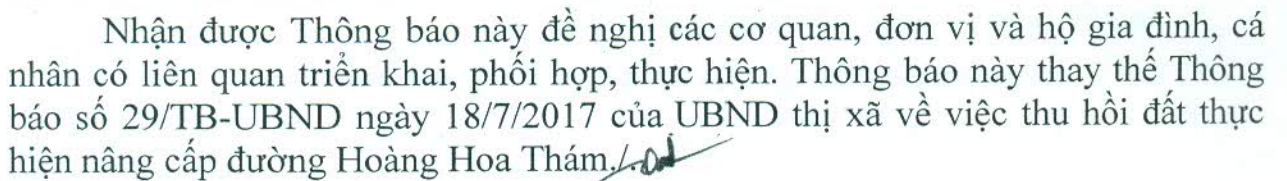 Nhận được Thông báo này đề nghị các cơ quan, đơn vị và hộ gia đình, cá
nhân có liên quan triển khai, phối hợp, thực hiện. Thông báo này thay thế Thông
báo số 29/TB-UBND ngày 18/7/2017 của UBND thị xã về việc thu hồi đất thực
hiện nâng cấp đường Hoàng Hoa Thám./.